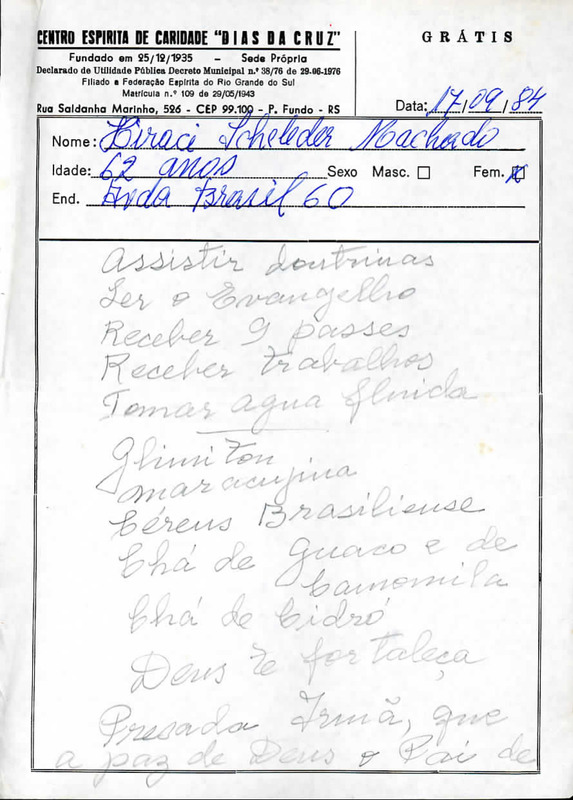 CENTRO ESPIRITA DE CARIDADE "DIAS DA CRUZ"
Fundado em 25/12/1935 - Sede Própria
Declarado de Utilidade Pública Decreto Municipal n.º 38/76 de 29-06-1976
Filiado a Federação Espírita do Rio Grande do Sul
Matrícula n.º 109 de 29/05/1943
Rua Saldanha Marinho, 526 - CEP 99.100 - P. Fundo - RS
GRÁTIS
Data: 17/09/84
Nome: Hiraci Scheleder Machado
Idade: 62 anos Sexo Masc. ☐ Fem. ☒
End. Avda Brasil 60
Assistir doutrinas
Ler o Evangelho
Receber 9 passes
Receber trabalhos
Tomar agua fluida
Maracujina
Céreus Brasiliense
Chá de Guaco e de
Camomila
Chá de Cidró
Deus te fortaleça
Presada Irmã, que
a paz de Deus o Pai de